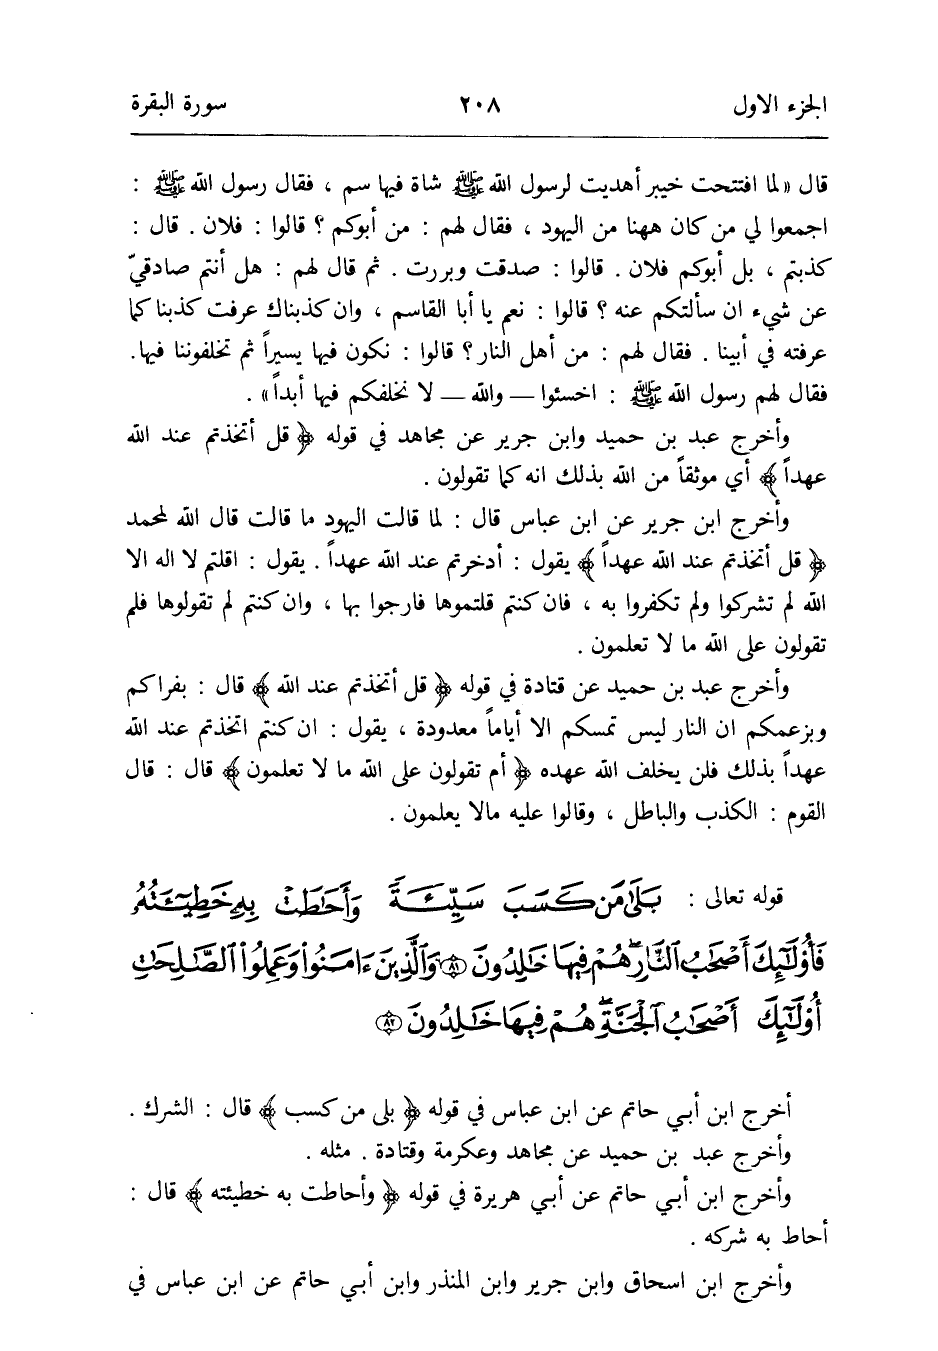 الجزء الاول ٢٠٨ سورة البقرة
قال «لما افتتحت خيبر أهديت لرسول الله ﷺ شاة فيها سم ، فقال رسول الله ﷺ :
اجمعوا لي من كان ههنا من اليهود ، فقال لهم : من أبوكم ؟ قالوا : فلان . قال :
كذبتم ، بل أبوكم فلان . قالوا : صدقت وبررت . ثم قال لهم : هل أنتم صادقيّ
عن شيء ان سألتكم عنه ؟ قالوا : نعم يا أبا القاسم ، وان كذبناك عرفت كذبنا كما
عرفته في أبينا . فقال لهم : من أهل النار ؟ قالوا : نكون فيها يسيراً ثم تخلفوننا فيها.
فقال لهم رسول الله ﷺ : اخسئوا — والله — لا نخلفكم فيها أبداً» .
وأخرج عبد بن حميد وابن جرير عن مجاهد في قوله ﴿ قل أتخذتم عند الله
عهداً ﴾ أي موثقاً من الله بذلك انه كما تقولون .
وأخرج ابن جرير عن ابن عباس قال : لما قالت اليهود ما قالت قال الله لمحمد
﴿ قل أتخذتم عند الله عهداً ﴾ يقول : أدخرتم عند الله عهداً . يقول : اقلتم لا اله الا
الله لم تشركوا ولم تكفروا به ، فان كنتم قلتموها فارجوا بها ، وان كنتم لم تقولوها فلم
تقولون على الله ما لا تعلمون .
وأخرج عبد بن حميد عن قتادة في قوله ﴿ قل أتخذتم عند الله ﴾ قال : بفراكم
وبزعمكم ان النار ليس تمسكم الا أياماً معدودة ، يقول : ان كنتم اتخذتم عند الله
عهداً بذلك فلن يخلف الله عهده ﴿ أم تقولون على الله ما لا تعلمون ﴾ قال : قال
القوم : الكذب والباطل ، وقالوا عليه مالا يعلمون .
قوله تعالى : بَلَىٰ مَن كَسَبَ سَيِّئَةً وَأَحَٰطَتۡ بِهِۦ خَطِيٓـَٔتُهُۥ
فَأُوْلَٰٓئِكَ أَصۡحَٰبُ ٱلنَّارِۖ هُمۡ فِيهَا خَٰلِدُونَ ٨١ وَٱلَّذِينَ ءَامَنُواْ وَعَمِلُواْ ٱلصَّٰلِحَٰتِ
أُوْلَٰٓئِكَ أَصۡحَٰبُ ٱلۡجَنَّةِۖ هُمۡ فِيهَا خَٰلِدُونَ ٨٢
أخرج ابن أبي حاتم عن ابن عباس في قوله ﴿ بلى من كسب ﴾ قال : الشرك .
وأخرج عبد بن حميد عن مجاهد وعكرمة وقتادة . مثله .
وأخرج ابن أبي حاتم عن أبي هريرة في قوله ﴿ وأحاطت به خطيئته ﴾ قال :
أحاط به شركه .
وأخرج ابن اسحاق وابن جرير وابن المنذر وابن أبي حاتم عن ابن عباس في